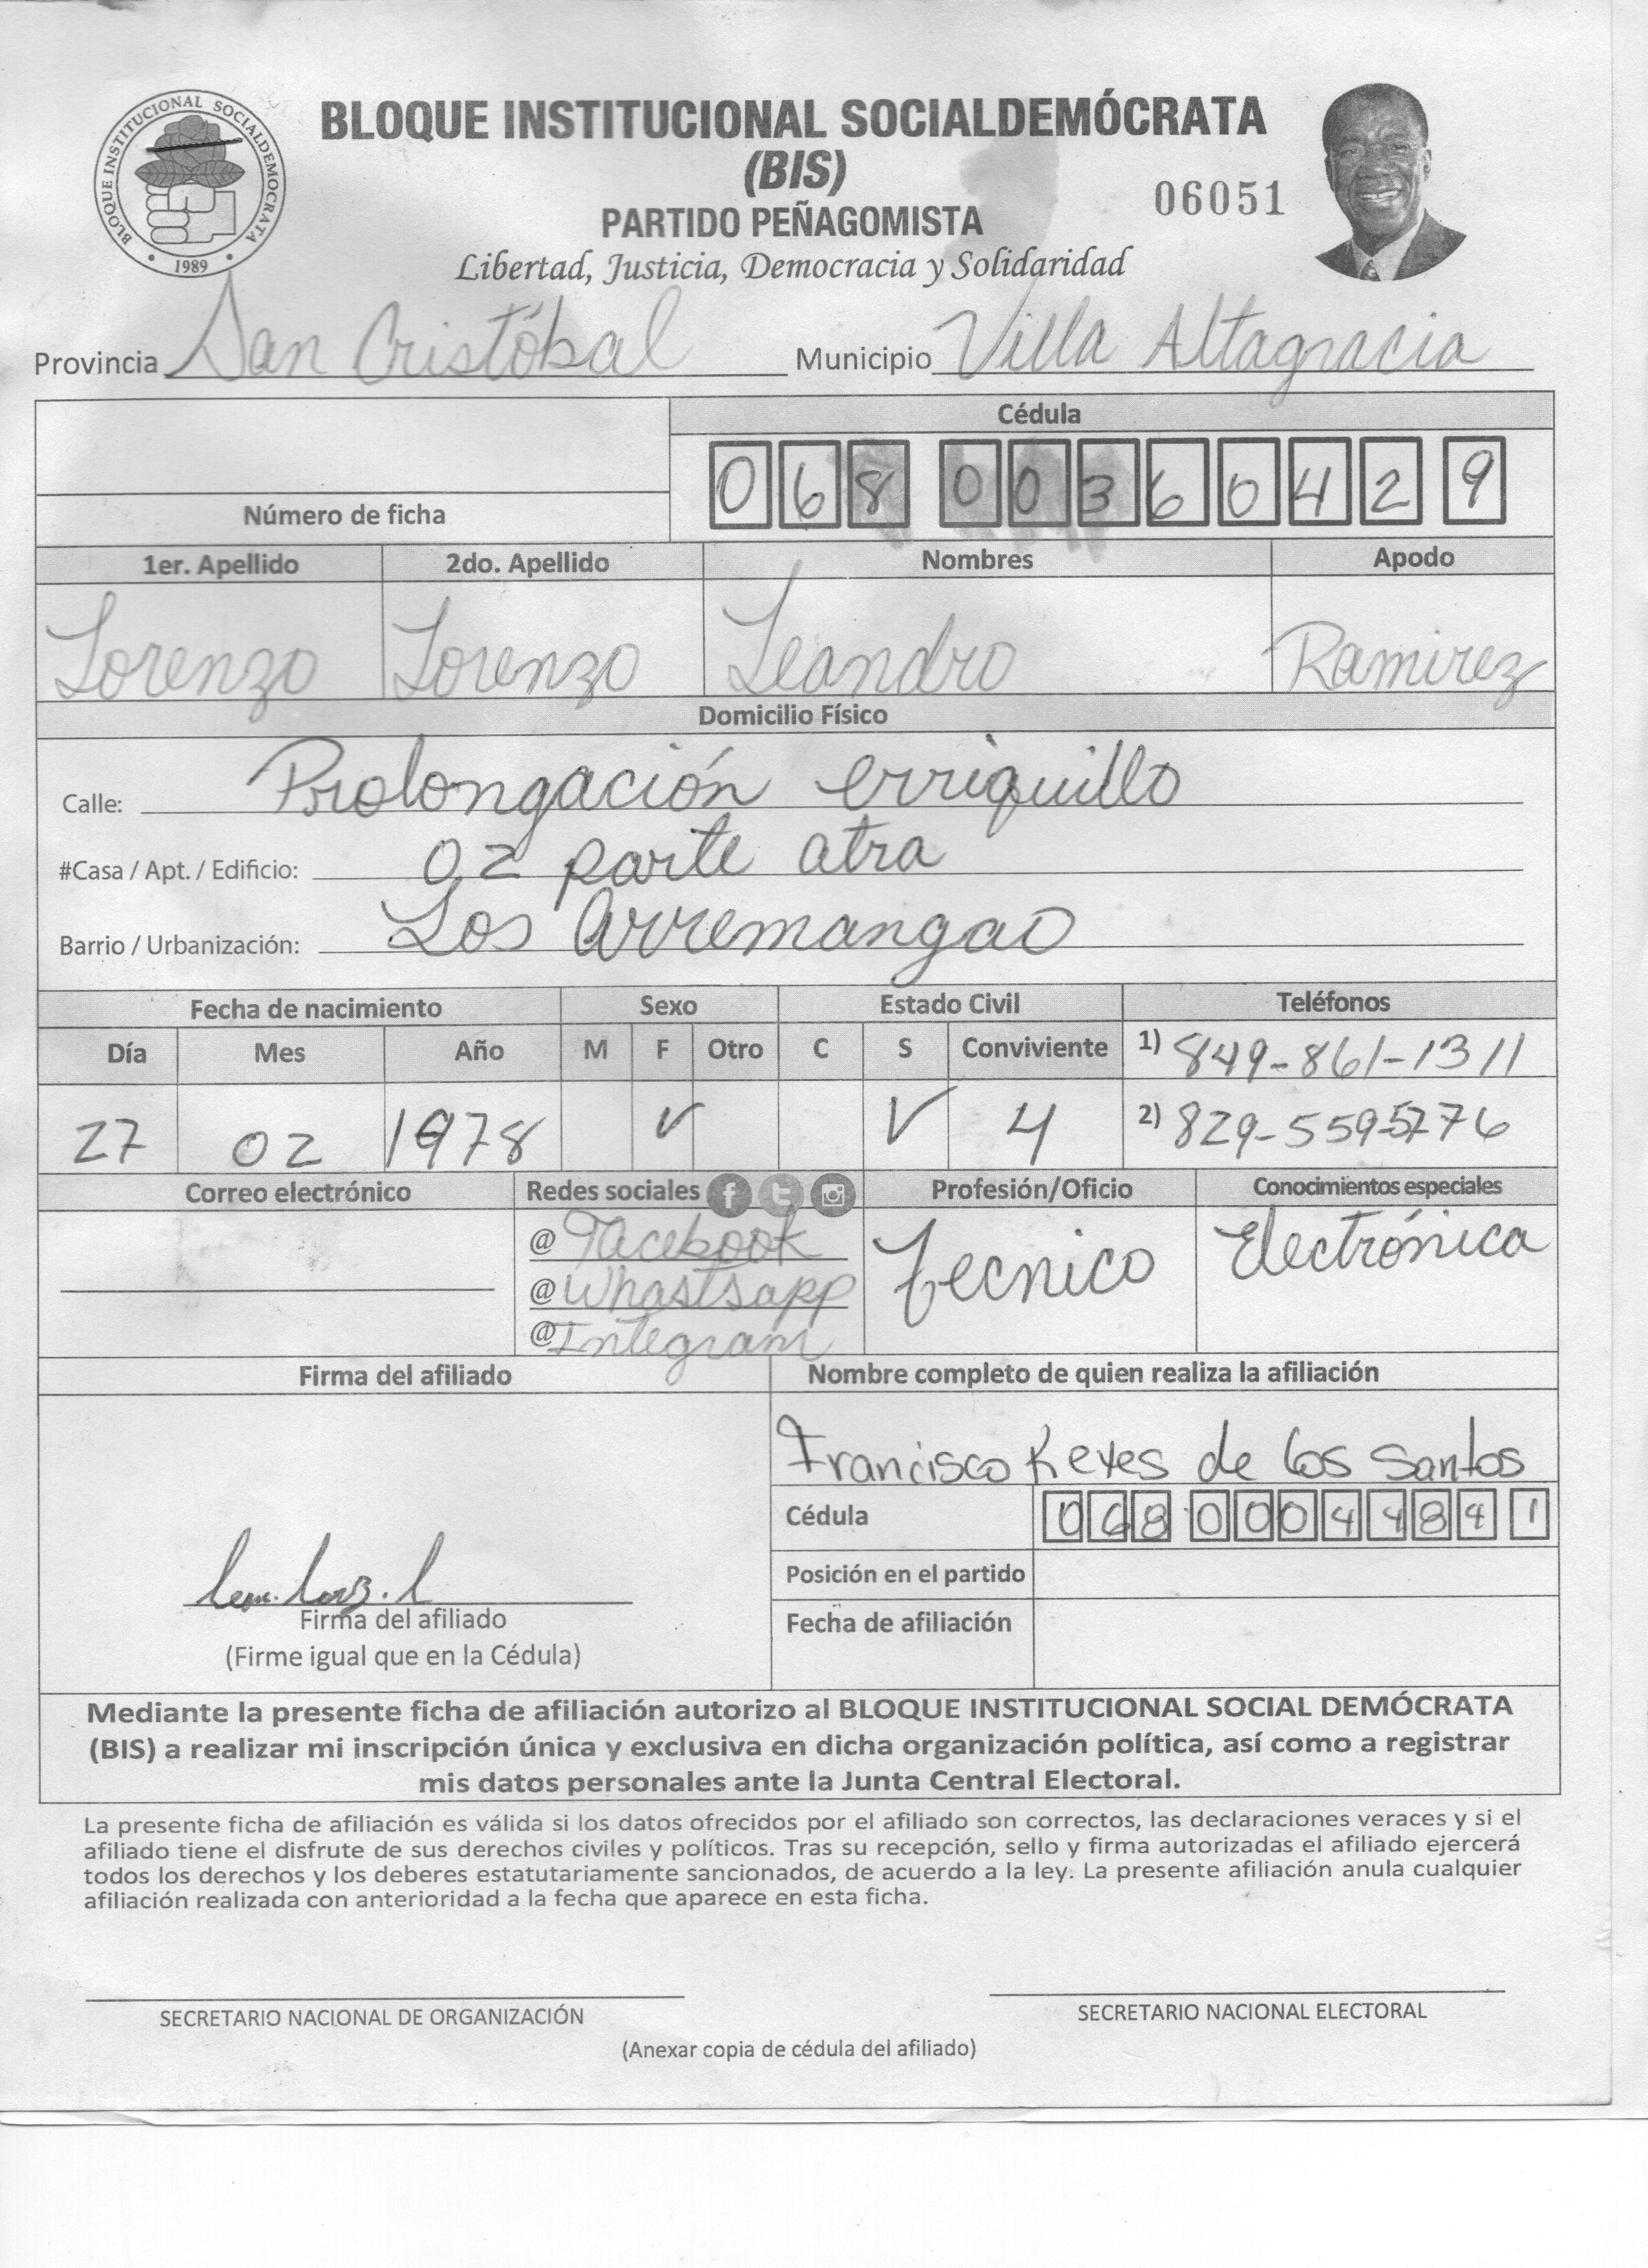 BLOQUE INSTITUCIONAL SOCIALDEMOCRATA
1989
BLOQUE INSTITUCIONAL SOCIALDEMÓCRATA
(BIS)
06051
PARTIDO PEÑAGOMISTA
Libertad, Justicia, Democracia y Solidaridad
Provincia San Cristóbal Municipio Villa Altagracia
Cédula
068 0036042 9
Número de ficha
1er. Apellido 2do. Apellido Nombres Apodo
Lorenzo Lorenzo Leandro Ramirez
Domicilio Físico
Calle: Prolongación erriquillo
#Casa / Apt. / Edificio: 02 parte atra
Barrio / Urbanización: Los Arremangao
Fecha de nacimiento Sexo Estado Civil Teléfonos
Día Mes Año M F Otro C S Conviviente 1) 849-861-1311
27 02 1978 ✓ ✓ 4 2) 829-559-5276
Correo electrónico Redes sociales Profesión/Oficio Conocimientos especiales
@ Facebook Tecnico Electrónica
@ Whastsapp
@ Integram
Firma del afiliado Nombre completo de quien realiza la afiliación
Francisco Reyes de los Santos
Cédula 068 0004484 1
Posición en el partido
Firma del afiliado
Fecha de afiliación
(Firme igual que en la Cédula)
Mediante la presente ficha de afiliación autorizo al BLOQUE INSTITUCIONAL SOCIAL DEMÓCRATA
(BIS) a realizar mi inscripción única y exclusiva en dicha organización política, así como a registrar
mis datos personales ante la Junta Central Electoral.
La presente ficha de afiliación es válida si los datos ofrecidos por el afiliado son correctos, las declaraciones veraces y si el
afiliado tiene el disfrute de sus derechos civiles y políticos. Tras su recepción, sello y firma autorizadas el afiliado ejercerá
todos los derechos y los deberes estatutariamente sancionados, de acuerdo a la ley. La presente afiliación anula cualquier
afiliación realizada con anterioridad a la fecha que aparece en esta ficha.
SECRETARIO NACIONAL DE ORGANIZACIÓN SECRETARIO NACIONAL ELECTORAL
(Anexar copia de cédula del afiliado)